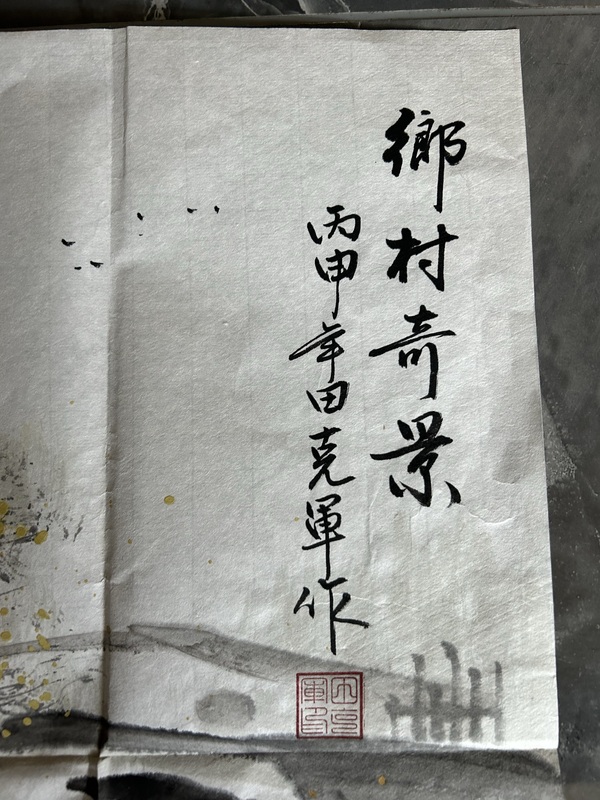 鄉村奇景
丙申年田克軍作